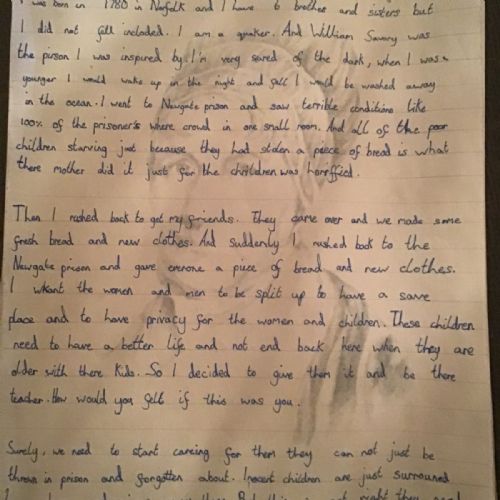 was born in 1780 in Norfolk and I have 6 brother and sisters but
I did not fell included. I am a quaker. And William Savory was
the pirson I was inspired by. I'm very sared of the dark, when I was
younger I would wake up in the night and fell I would be washed away
in the ocean. I went to Newgate prison and saw terrible conditions like
100% of the prisoner's where crowd in one small room. And all of the poor
children starving just because they had stolen a piece of bread is what
there mother did it just for the children was horriffied.
Then I rushed back to get my friends. They came over and we made some
fresh bread and new clothes. And suddenly I rushed back to the
Newgate prison and gave everone a piece of bread and new clothes.
I wkant the women and men to be split up to have a save
place and to have privacy for the women and children. These children
need to have a better life and not end back here when they are
older with there Kids. So I decided to give them it and be there
teacher. How would you felt if this was you.
Surely, we need to start careing for them they can not just be
thrown in prison and forgotten about. Inocent children are just surrouned